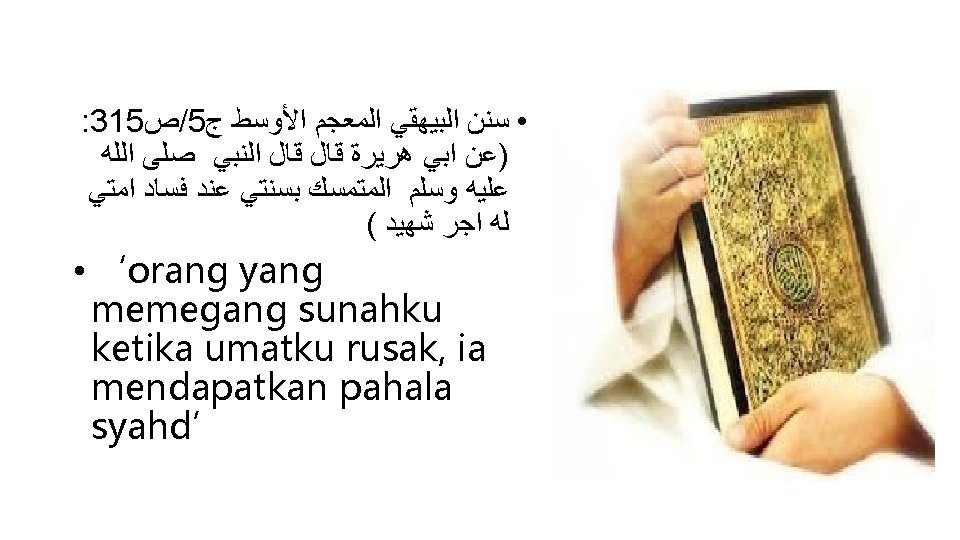 • سنن البيهقي المعجم الأوسط ج5/ص315:
(عن ابي هريرة قال قال النبي صلى الله
عليه وسلم المتمسك بسنتي عند فساد امتي
له اجر شهيد )
• ‘orang yang
memegang sunahku
ketika umatku rusak, ia
mendapatkan pahala
syahd’